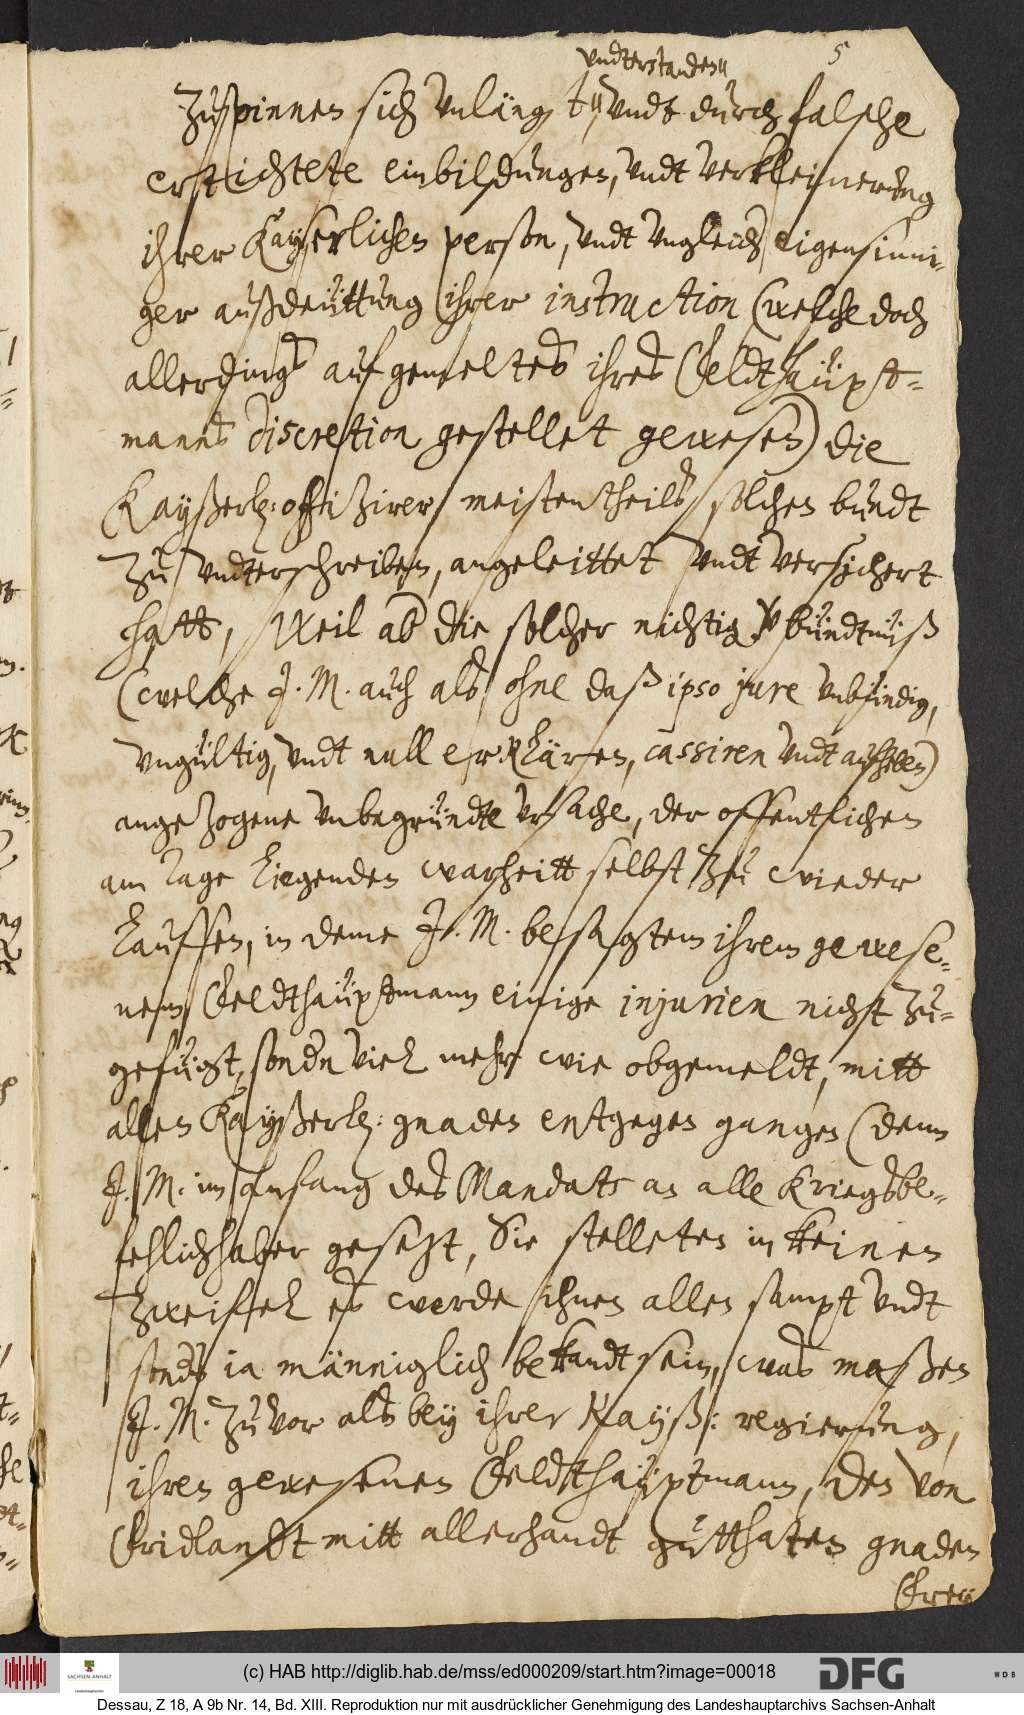 undterstanden
5
Zuspinnen sich unlängst, undt durch falsche
ertichtete einbildungen, undt verkleinerung
ihrer Kayserlichen person, undt ungleich eigensinni-
ger außdeüttung ihrer instruction (welche doch
allerdings auf gemeltes ihres Feldthaüpt-
manns discretion gestellet gewesen) die
Kayßerl: offizirer meistentheils, solchen bundt
zu undterschreiben, angeleittet undt versichert
hatt, Weil ab die solcher nichtig bündtnüß
(welche J. M. auch als ohne daß ipso jure unbündig,
ungültig, undt null erklären, cassiren undt aufheben)
angezogene unbegründte ursache, der offentlichen
am tage liegenden warheitt selbst zu wieder
lauffen, in deme J. M. besagtem ihrem gewese-
nem Feldthaüptmann einige injurien nicht zu-
gefügt, sondn viel mehr wie obgemeldt, mitt
allen Kayßerl: gnaden entgegen gangen (denn
J. M. im anfang des Mandats an alle Kriegsbe-
fehlichshaber gesetzt, Sie stelleten in keinen
Zweiffel es werde ihnen allen sampt undt
sonds ia männiglich bekandt sein, was maßen
J. M. zuvor als bey ihrer Kayß: regierung,
ihren gewesenen Feldthaüptmann, den von
Fridlandt mitt allerhandt gutthaten gnaden
Frey
(c) HAB http://diglib.hab.de/mss/ed000209/start.htm?image=00018
SACHSEN-ANHALT
DFG
WDB
Dessau, Z 18, A 9b Nr. 14, Bd. XIII. Reproduktion nur mit ausdrücklicher Genehmigung des Landeshauptarchivs Sachsen-Anhalt